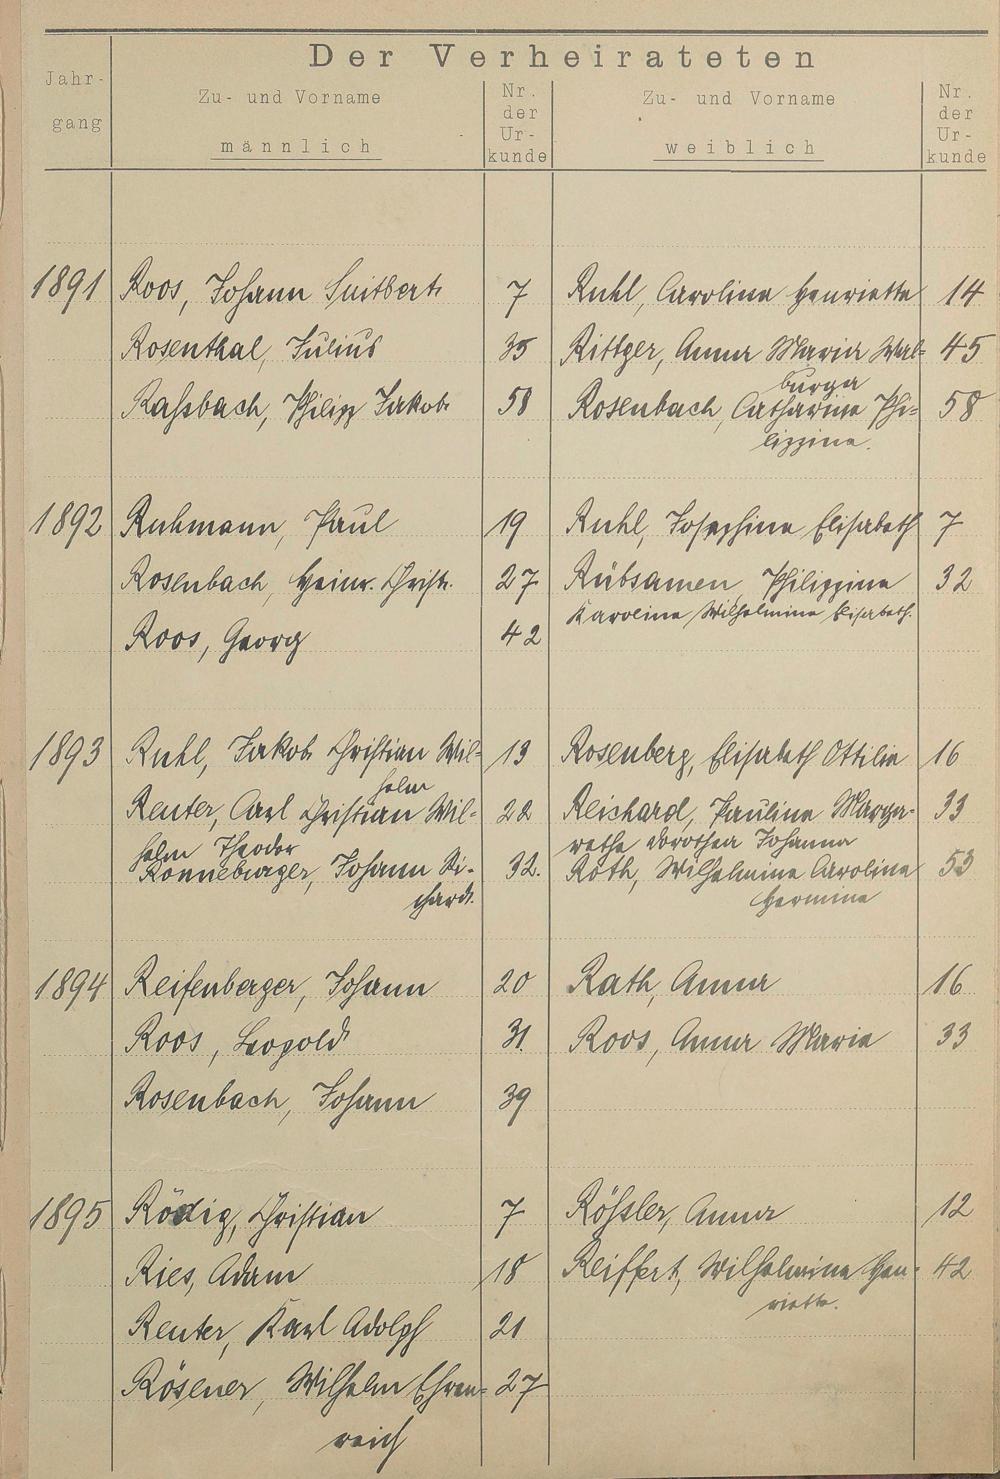 Der Verheirateten
Jahr-
gang
Zu- und Vorname
männlich
Nr.
der
Ur-
kunde
Zu- und Vorname
weiblich
Nr.
der
Ur-
kunde
1891 Roos, Johann Suitbert 7 Ruhl, Carolina Henriette 14
Rosenthal, Julius 35 Rittger, Anna Maria Wal- 45
burga
Raßbach, Philipp Jakob 58 Rosenbach, Catharina Phi- 58
lippina.
1892 Ruhmann, Paul 19 Ruhl, Josephina Elisabeth 7
Rosenbach, Heinr. Christ. 27 Rübsamen, Philippina 32
Karolina Wilhelmina Elisabeth.
Roos, Georg 42
1893 Ruhl, Jakob Christian Wil- 13 Rosenberg, Elisabeth Ottilie 16
helm
Reuter, Carl Christian Wil- 22 Reichard, Paulina Marga- 33
helm Theodor retha Dorothea Johanna
Ronneburger, Johann Ri- 32. Roth, Wilhelmina Carolina 53
chard. Hermine
1894 Reifenberger, Johann 20 Rath, Anna 16
Roos, Leopold 31. Roos, Anna Maria 33
Rosenbach, Johann 39
1895 Rödig, Christian 7 Rößler, Anna 12
Ries, Adam 18 Reiffert, Wilhelmina Hen- 42
riette.
Reuter, Karl Adolph 21
Rösener, Wilhelm Ehren- 27
reich